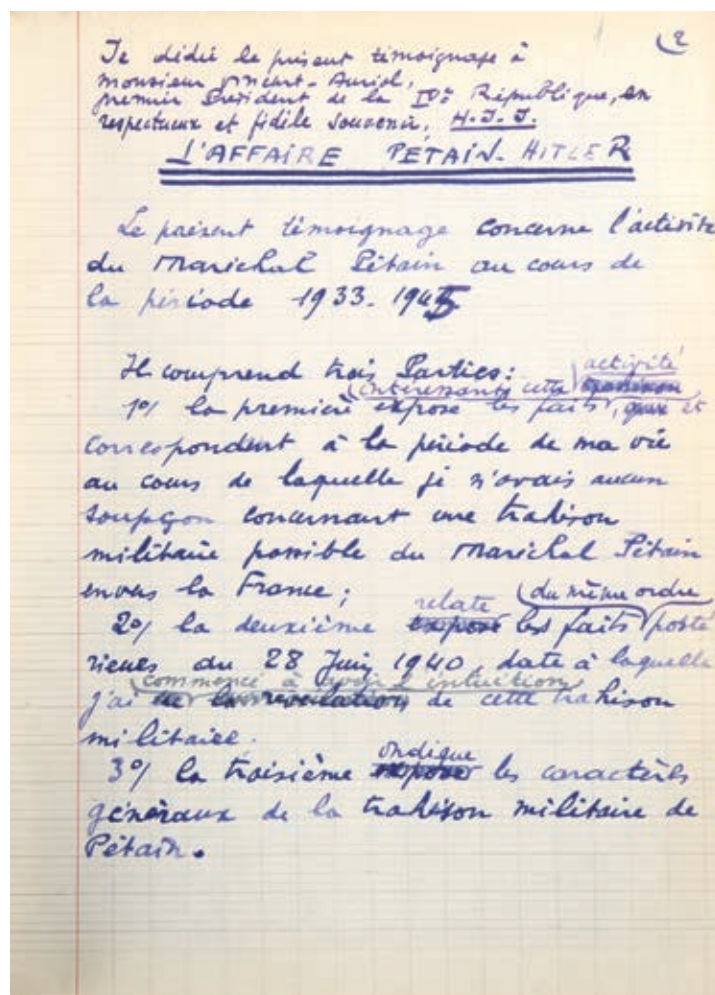 2
Je dédie le présent témoignage à
monsieur Vincent-Auriol,
premier Président de la IVe République, en
respectueux et fidèle souvenir, H.J.J.
L'AFFAIRE PETAIN-HITLER
Le présent témoignage concerne l'activité
du Maréchal Pétain au cours de
la période 1933-1945
Il comprend trois Parties:
activité
(intéressant cette trahison
1°/ la première expose les faits, que et
correspondent à la période de ma vie
au cours de laquelle je n'avais aucun
soupçon concernant une trahison
militaire possible du Maréchal Pétain
envers la France;
relate du même ordre
2°/ la deuxième expose les faits posté
rieurs du 28 Juin 1940, date à laquelle
commencé à avoir l'intuition
j'ai eu la révélation de cette trahison
militaire.
indique
3°/ la troisième expose les caractères
généraux de la trahison militaire de
Pétain.